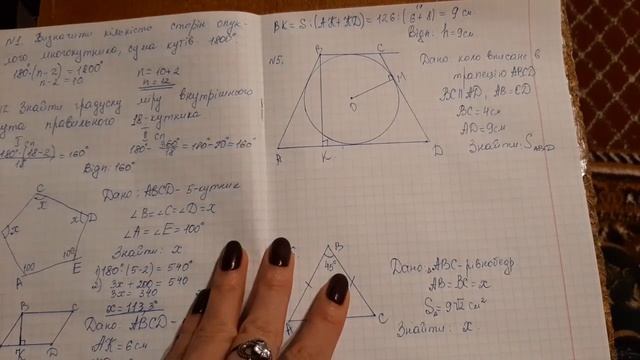 N1. Визначити кількість сторін опук-
лого многокутника, сума кутів 1800°
180°(n-2) = 1800°
n-2 = 10
n = 10+2
n = 12
N2. Знайти градусну міру внутрішнього
кута правильного 18-кутника
I
II сп
180°(18-2)/18 = 160°
180° - 360°/18 = 180° - 20° = 160°
Відп: 160°
Дано: ABCD - 5-кутник
∠B = ∠C = ∠D = x
∠A = ∠E = 100°
Знайти: x
1) 180°(5-2) = 540°
2) 3x + 200 = 540
3x = 340
x = 113,3°
C
x
x
D
x
100
A
100
E
B
C
K
D
Дано: ABCD -
AK = 6см
BK = S : (AK + KD) = 126 : (6 + 8) = 9 см
Відп: h = 9см.
N5.
B
C
M
O
A
K
D
Дано: коло вписане в
трапецію ABCD
BC ∥ AD, AB = CD
BC = 4см
AD = 9см
Знайти: S ABCD
B
45°
A
C
Дано: △ABC - рівнобедр.
AB = BC = x
S△ = 9√2 см²
Знайти: x